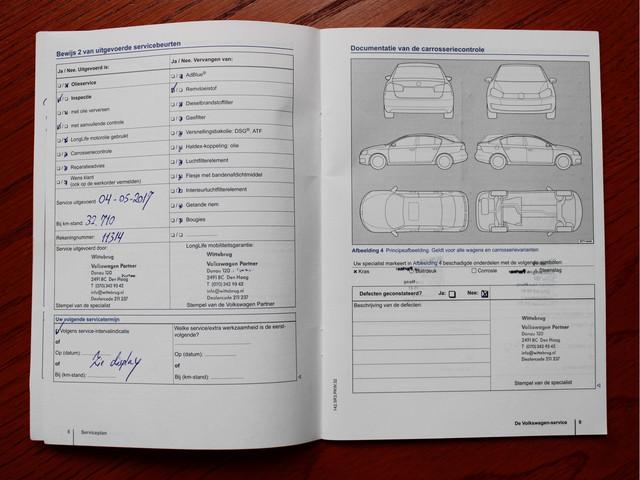 Bewijs 2 van uitgevoerde servicebeurten
Ja / Nee. Uitgevoerd is:
Olieservice
Inspectie
met olie verversen
met aanvullende controle
LongLife motorolie gebruikt
Carrosseriecontrole
Reparatieadvies
Wens klant
(ook op de werkorder vermelden)
Service uitgevoerd: 04-05-2017
Bij km-stand: 32.710
Rekeningnummer: 11314
Service uitgevoerd door:
Wittebrug
Volkswagen Partner
Donau 120
2491 BC Den Haag
T (070) 343 93 43
info@wittebrug.nl
Dealercode 211 237
Stempel van de specialist
Ja / Nee. Vervangen van:
AdBlue®
Remvloeistof
Dieselbrandstoffilter
Gasfilter
Versnellingsbakolie: DSG®, ATF
Haldex-koppeling: olie
Luchtfilterelement
Flesje met bandenafdichtmiddel
Interieurluchtfilterelement
Getande riem
Bougies
LongLife mobiliteitsgarantie:
Wittebrug
Volkswagen Partner
Donau 120
2491 BC Den Haag
T (070) 343 93 43
info@wittebrug.nl
Dealercode 211 237
Stempel van de Volkswagen Partner
Uw volgende servicetermijn
Volgens service-intervalindicatie
of
Op (datum):
Zie display
of
Bij (km-stand):
Welke service/extra werkzaamheid is de eerst-
volgende?
Op (datum):
of
Bij (km-stand):
8 Serviceplan
Documentatie van de carrosseriecontrole
Afbeelding 4 Principeafbeelding. Geldt voor alle wagens en carrosserievarianten
Uw specialist markeert in Afbeelding 4 beschadigde onderdelen met de volgende symbolen:
x Kras Blutsdeuk Corrosie Steenslag
Defecten geconstateerd? Ja: Nee:
Beschrijving van de defecten:
Wittebrug
Volkswagen Partner
Donau 120
2491 BC Den Haag
T (070) 343 93 43
info@wittebrug.nl
Dealercode 211 237
Stempel van de specialist
De Volkswagen-service 9